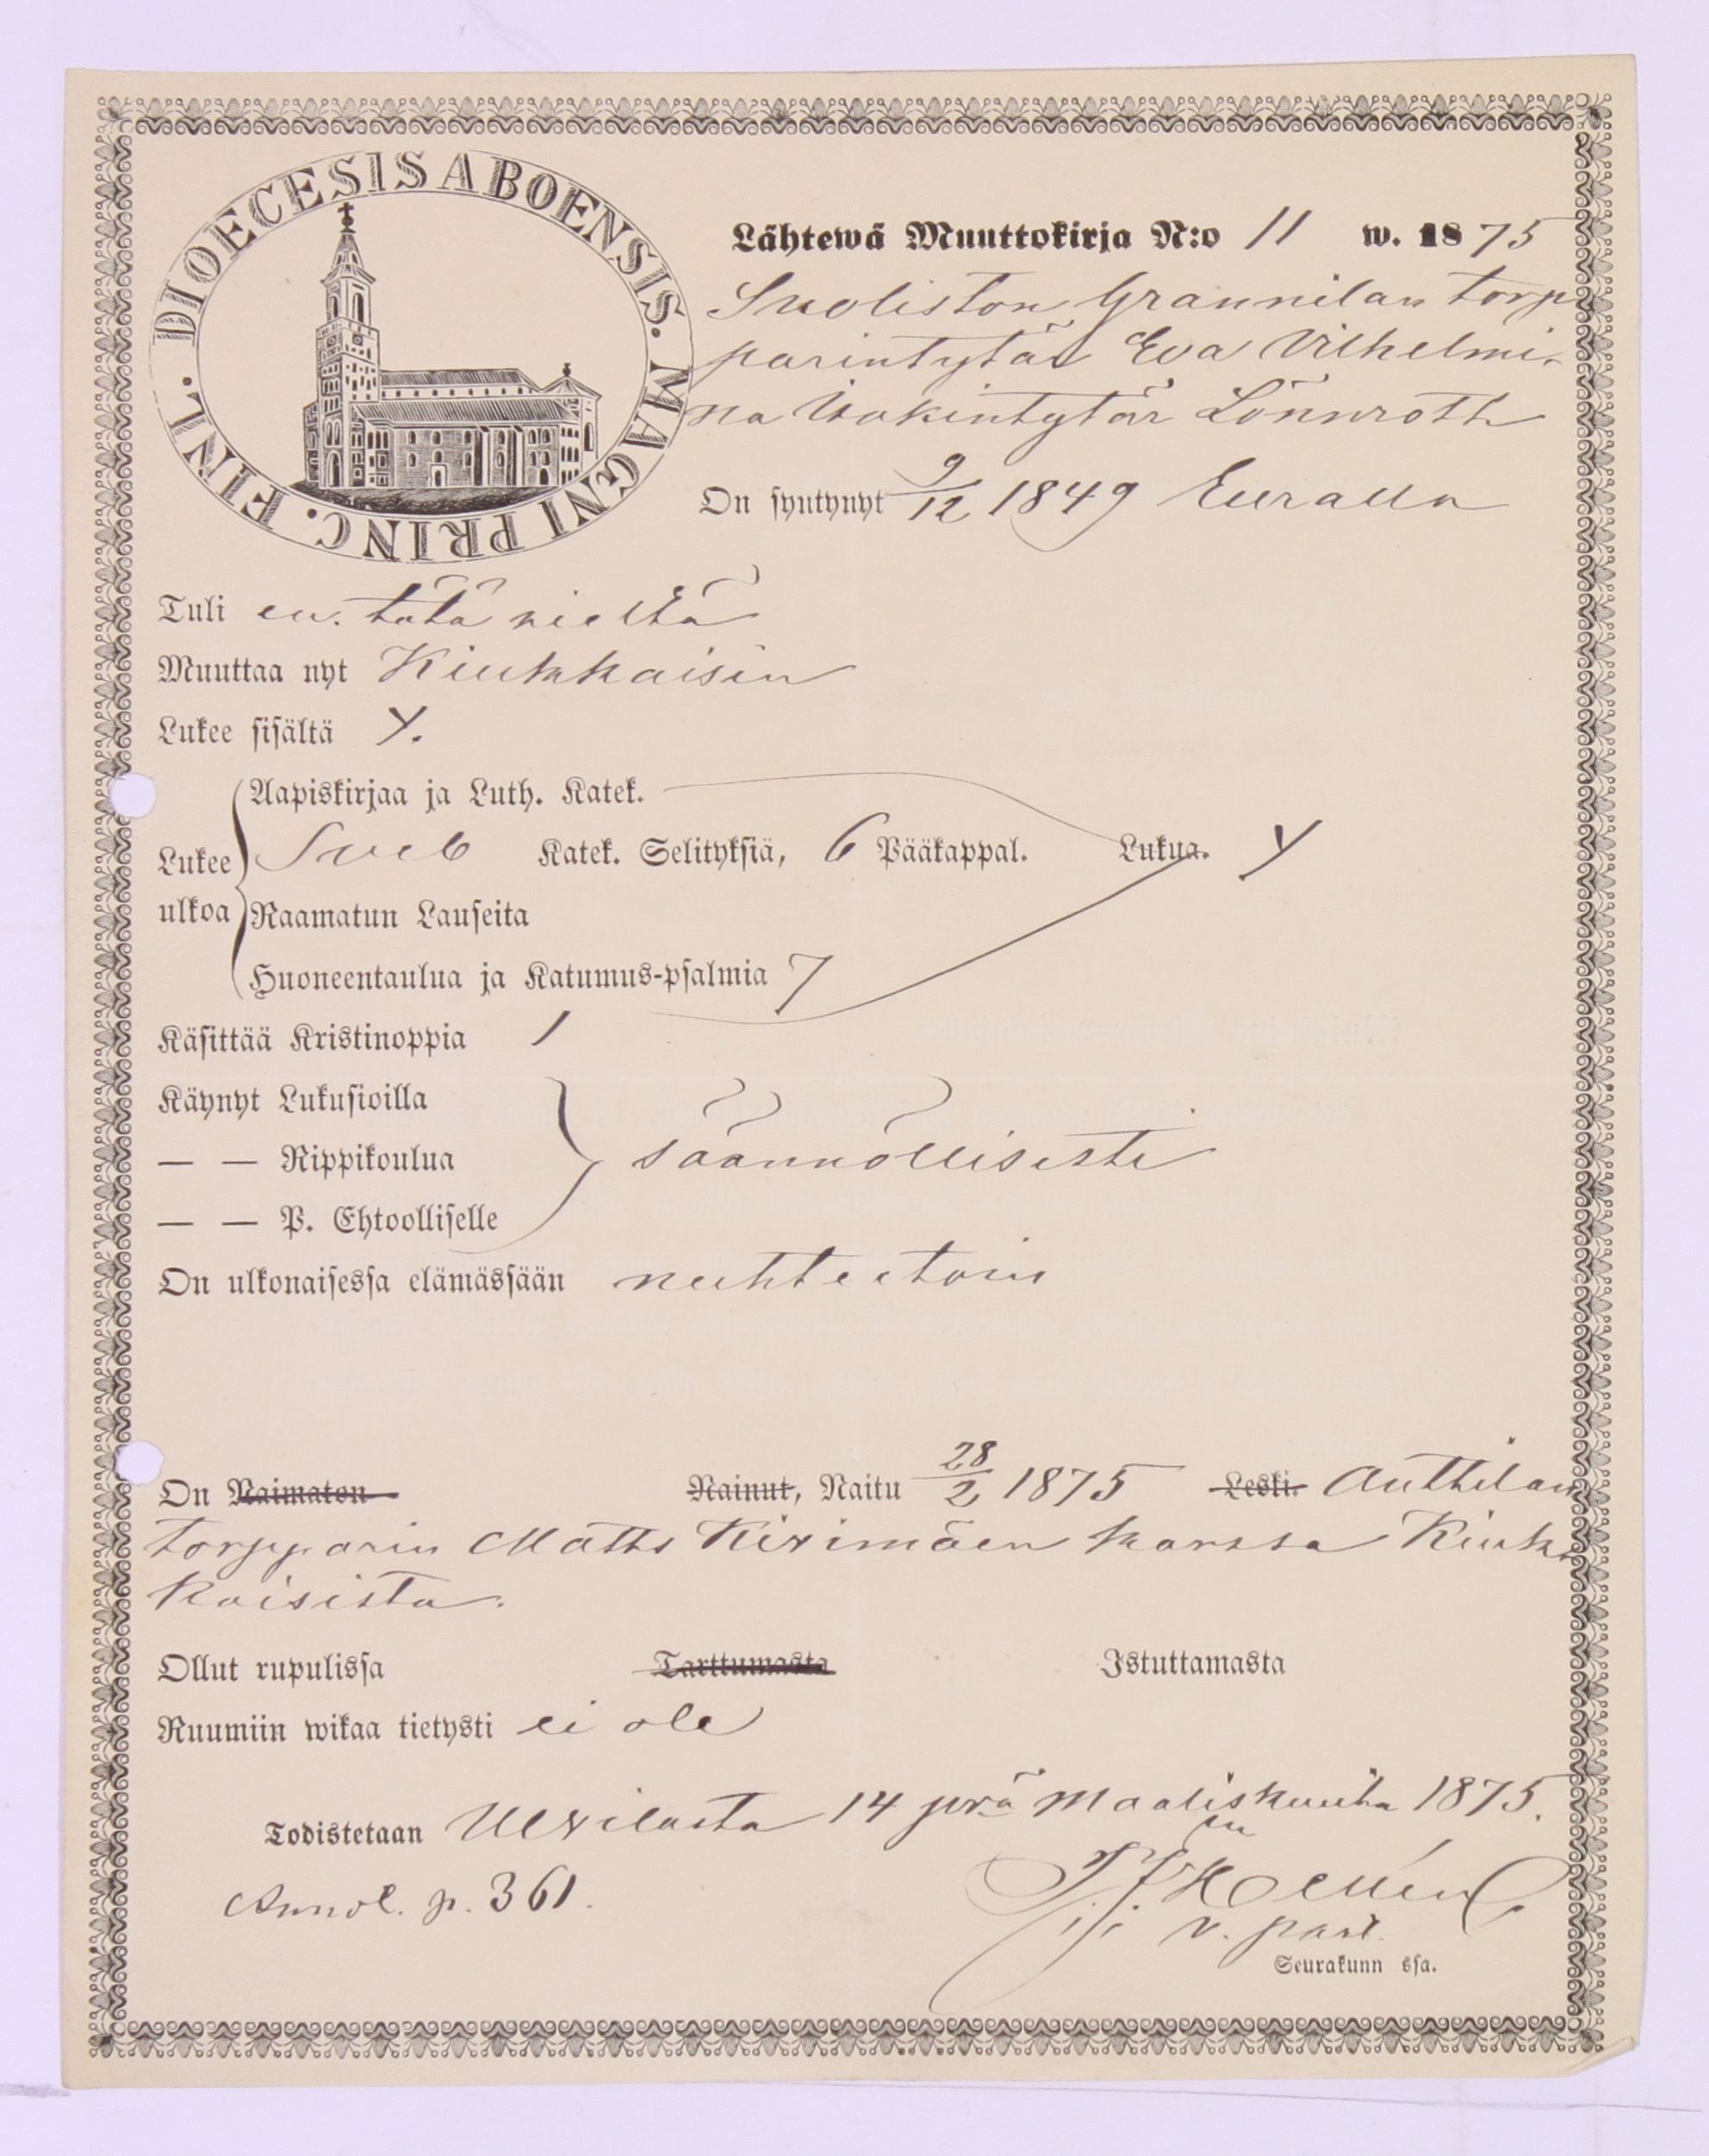 DIOECESIS ABOENSIS. MAGNI PRINC. FINL.
Lähtewä Muuttokirja N:o 11 w. 1875
Suoliston Grannilan torp
parintytär Eva Vilhelmi-
na Isakintytär Lönnroth
On syntynyt 9/12 1849 Eurassa
Tuli en. tätä
Muuttaa nyt Kiukkaisiin
Lukee sisältä Y.
Aapiskirjaa ja Luth. Katek.
Lukee Sveb Katek. Selityksiä, 6 Pääkappal. Lukua. Y
ulkoa Raamatun Lauseita
Huoneentaulua ja Katumus-psalmia 7
Käsittää Kristinoppia 1
Käynyt Lukusioilla
— — Rippikoulua säännöllisesti
— — P. Ehtoolliselle
On ulkonaisessa elämässään nuhteetoin
On Naimaton Nainut, Naitu 28/2 1875 Leski. Anttilan
torpparin Matts Kivimäen kanssa Kiuk-
kaisista.
Ollut rupulissa Tarttumasta Istuttamasta
Ruumiin wikaa tietysti ei ole
Todistetaan Ulvilasta 14 pvä Maaliskuuta 1875.
Annot. p. 361.
v. past.
Seurakunn ssa.